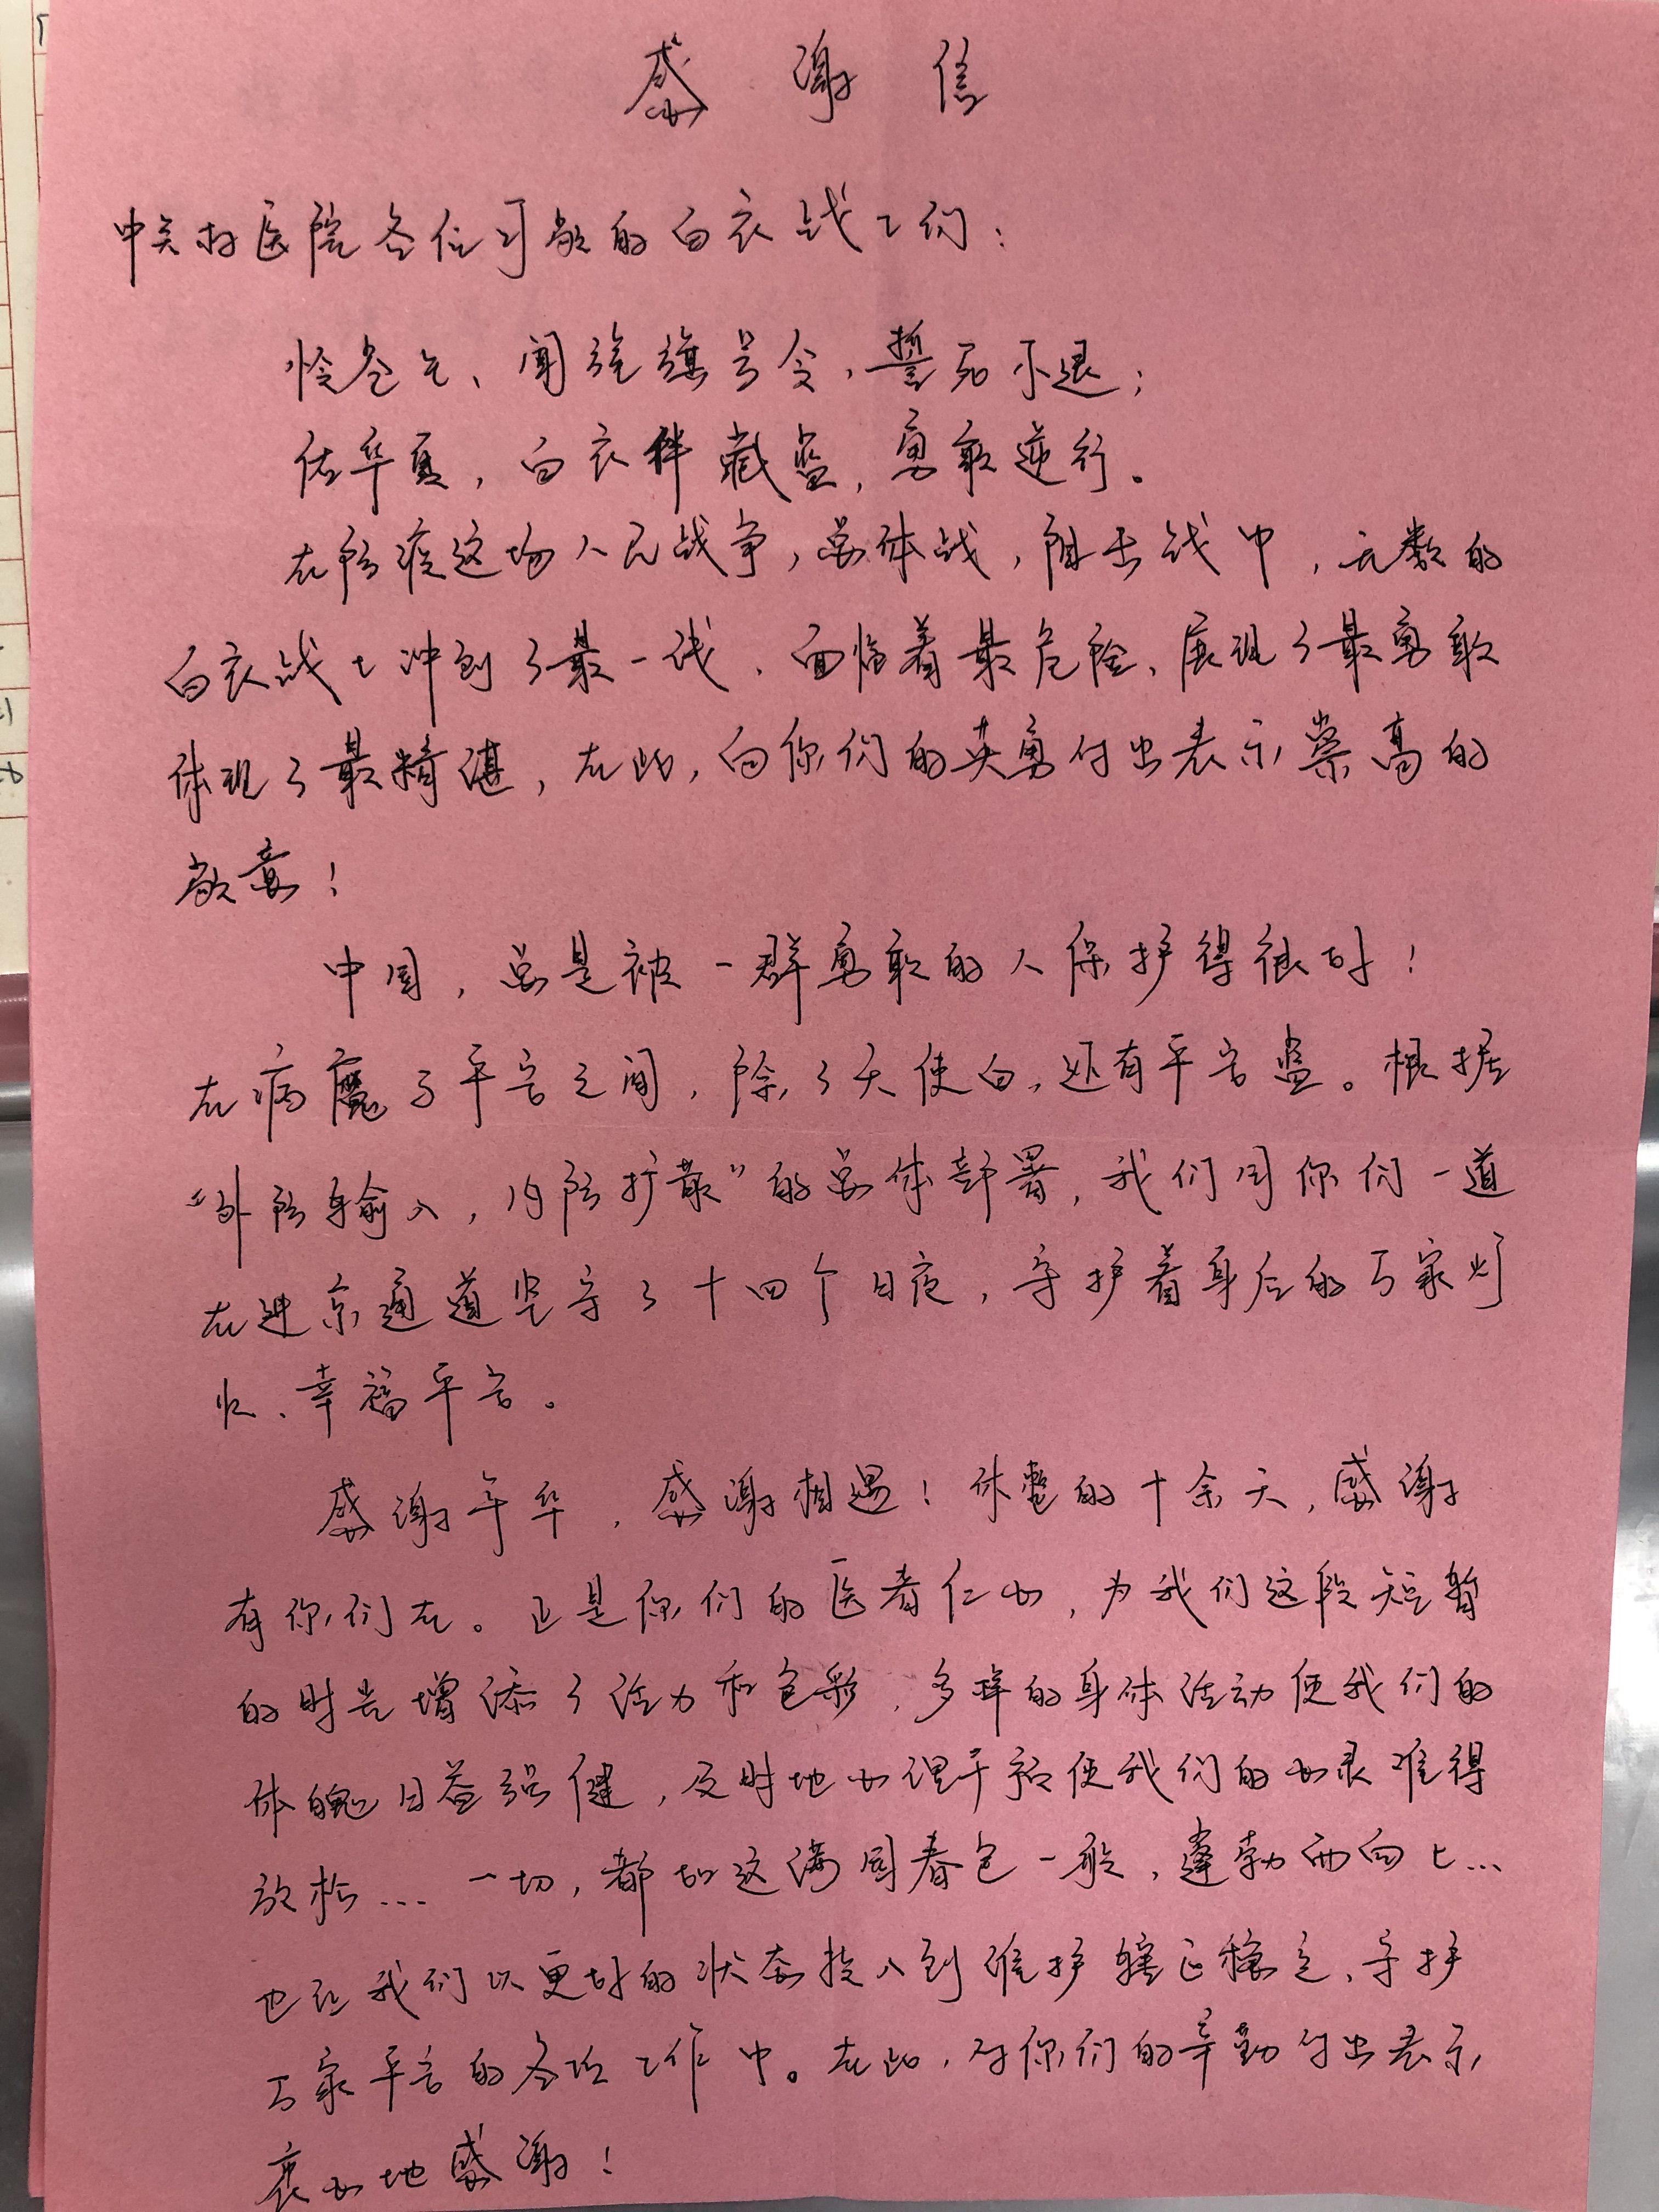 感谢信
中关村医院各位可敬的白衣战士们：
怜苍生、闻旌旗号令，誓死不退；
佑华夏，白衣伴藏蓝，勇敢逆行。
在防疫这场人民战争，总体战，阻击战中，无数的
白衣战士冲到了最一线、面临着最危险、展现了最勇敢
体现了最精湛，在此，向你们的英勇付出表示崇高的
敬意！
中国，总是被一群勇敢的人保护得很好！
在病魔与平安之间，除了天使白，还有平安蓝。根据
“外防输入，内防扩散”的总体部署，我们同你们一道
在进京通道坚守了十四个日夜，守护着身后的万家灯
火、幸福平安。
感谢年华，感谢相遇！休整的十余天，感谢
有你们在。正是你们的医者仁心，为我们这段短暂
的时光增添了活力和色彩，多样的身体活动使我们的
体魄日益强健，及时地心理干预使我们的心灵难得
放松... 一切，都如这满园春色一般，蓬勃而向上...
也让我们以更好的状态投入到维护辖区稳定、守护
万家平安的各项工作中。在此，对你们的辛勤付出表示
衷心地感谢！